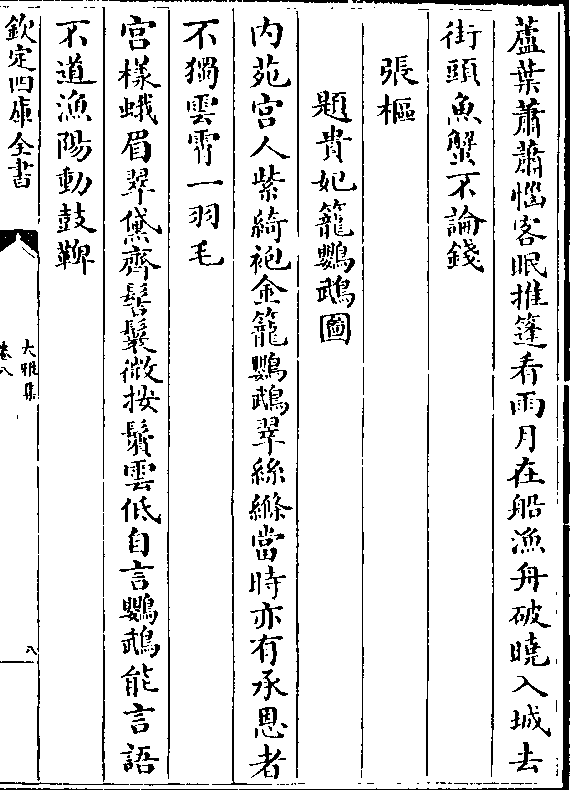 蘆葉蕭蕭惱客眠推篷看雨月在船漁舟破曉入城去
街頭魚蟹不論錢
張樞
題貴妃籠鸚鵡圖
内苑宫人紫綺袍金籠鸚鵡翠絲絛當時亦有承恩者
不獨雲霄一羽毛
宫樣蛾眉翠黛齊髻鬟微按鬢雲低自言鸚鵡能言語
不道漁陽動鼓鞞
欽定四庫全書
大雅集
卷八
八